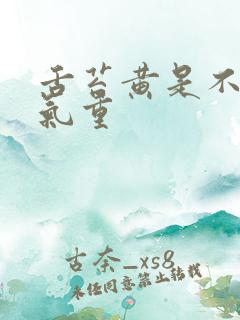 舌苔黄是不
气重
古奈_xs8
未经同意禁止转载